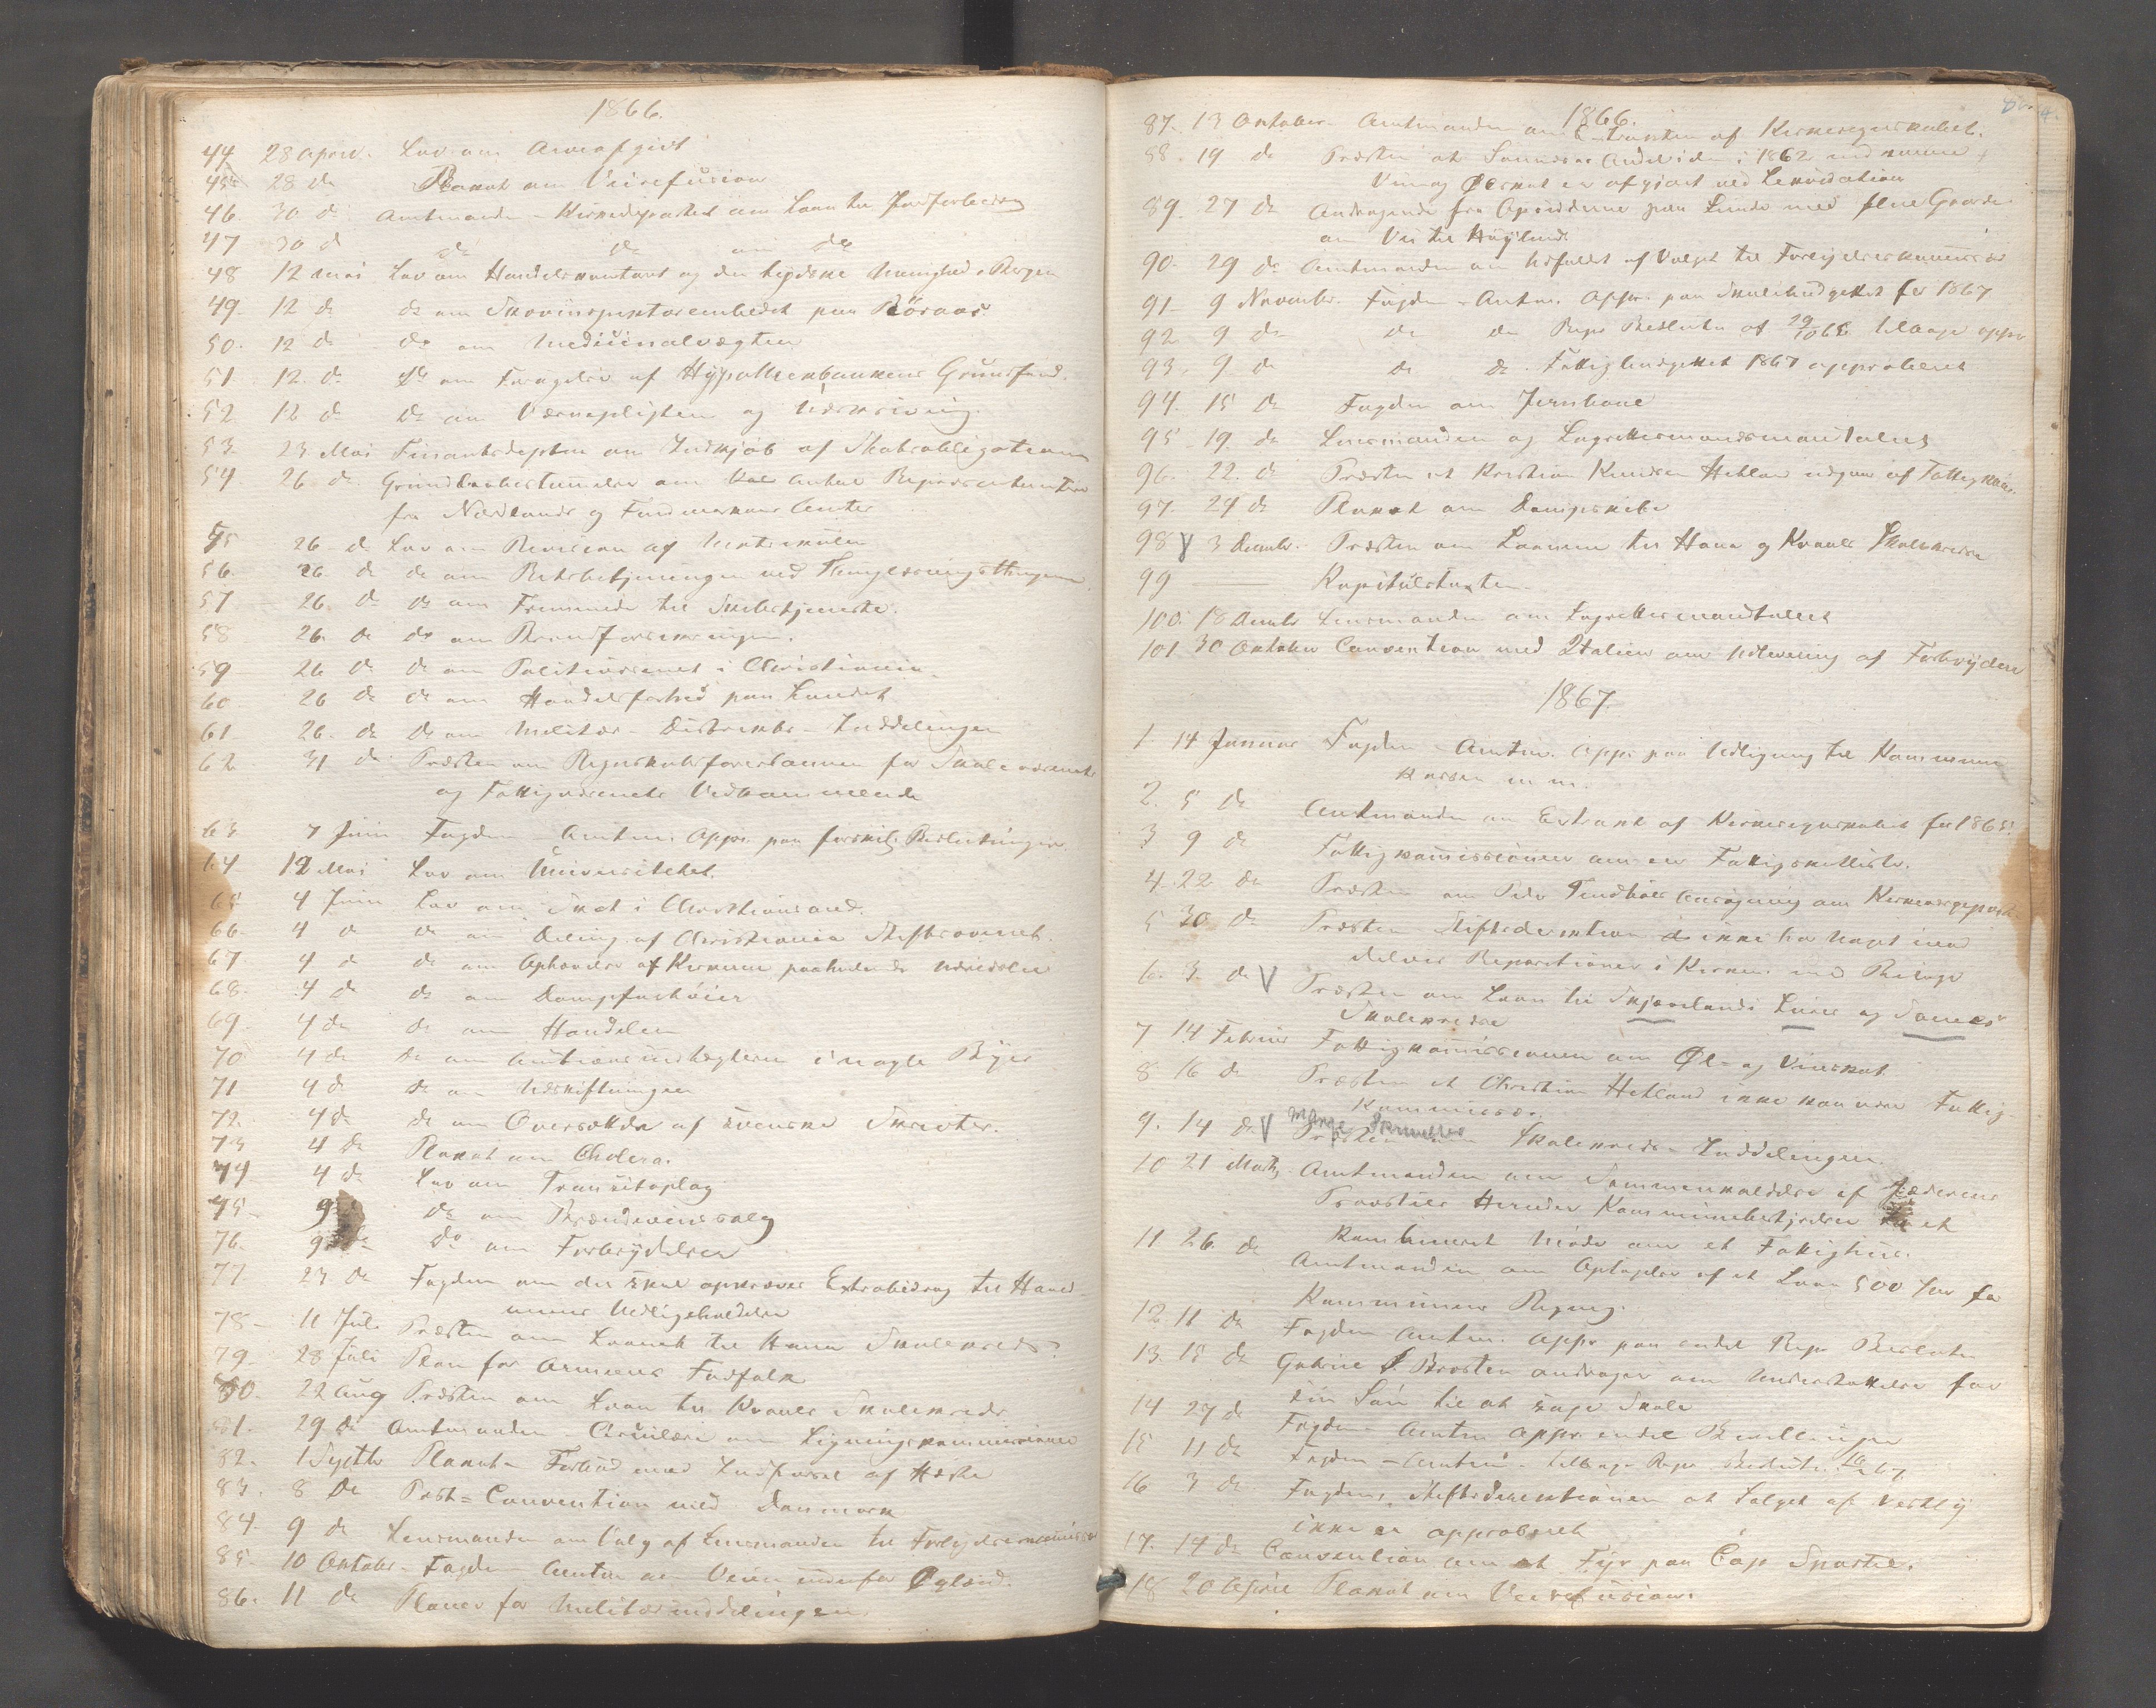 1866.
44. 28 April. Lov om Arveafgivt
45 28 do Plakat om Veirefusion
46. 30 do Amtmanden - Kirkedepartet om Laan til Jordforbedring
47 30 d do do om do
48 12 Mai Lov om Handelskontoret og den tydske Menighed i Bergen
49. 12 do do om Skovinspektorembedet paa Röraas
50. 12 do do om Medicinalvægten
51. 12. do do om Forøgelse af Hypothekbankens Grundfond.
52 12 do do om Værnepligten og Udskrivning.
53. 23 Mai Finantsdeptm om Indkjøb af Statsobligationer
54. 26 do Grundlovbestemmelse om Antal Repræsentanter
fra Nordlands og Finmarkens Amter
55 26 do Lov om Revision af Matrikulen
56. 26. do do om Retsbetjeningen ved Thinglæsning
57. 26 do do om Fremmede til Skibstjeneste.
58 26. do do om Brandforsikringen.
59 26 do do om Politivæsenet i Christiania
60. 26 do do om Handelsforhold paa Landet
61. 26. do do om Militær-Distrikts-Inddelingen
62 31 do Præsten om Regnskabsforestanderen for Skolevæsenets
og Fattigvæsenets Vedkommende
63 7 Juni Fogden - Amtm. Appr. paa forskil. Beslutninger.
64. 12 Mai Lov om Universitetet.
65 4 Juni Lov om i Christiansand.
66. 4 do do om Deling af Christiania Stiftsoverret.
67. 4 do do om Ophævelse af Kirkerne paahvilende
68. 4 do do om Dampfartöier
69. 4 do do om Handelen
70 4 do do om Auktionsindtægterne i nogle Byer
71 4 do do om Udskiftningen
72. 4 do do om Oversættelse af svenske Skrifter.
73 4 do Plakat om Cholera.
74. 4 do Lov om Transitoplag
75 9 do om Brændevinssalg
76. 9 do do om Forbrydelser
77 23 do Fogden om der skal opkræves Extrabidrag til
Vedligeholdelse
78 11 Juli Præsten om Laanet til Hana Skolekreds.
79. 28 Juli Plan for Armeens Fodfolk
80. 22 Aug Præsten om Laan til Kvaals Skolekreds
81. 29 do Amtmanden - Circulære om Ligningskommissionen
82. 1 Septbr Plakat - Forbud mod Indførsel af Heste
83. 8 do Post-Convention med Danmark
84. 9 do Lensmanden om Valg af Lensmanden til Forlydelseskommissær
85. 10 Oktober - Fogden Amtm om Veien indenfor Øglænd.
86. 11 do Planer for Militærinddelingen
1866.
87. 13 Oktober Amtmanden om Extrakten af Kirkeregnskabet.
88. 19 do Præsten at Sandnæs Andel i den i 1862
Viin og Ølskat er afgjort ved Likvidation
89. 27 do Andragende fra Opsidderne paa Lunde med flere Gaarde
om Vei til Høyland.
90. 29 do Amtmanden om Udfaldet af Valget til Forligelseskommissær
91 9 Novembr. Fogden - Amtm. Appr. paa Skolebudgettet for 1867
92 9 do do do Repr Beslutn af 29/10 65 tilbage appr
93. 9 do do do Fattigbudgettet 1867 approberet
94. 15 do Fogden om Jernbane
95 19. do Lensmanden og Lagrettesmandsmandtallet
96. 22. do Præsten at Kristian Knudsen Hetland udgaar af Fattigkom.
97. 24 do Plakat om Dampskibe
98 V 3 Decmbr. Præsten om Laanene til Hana og Kvaals Skolekredse
99 — Kapitelstaxten
100. 18 Decmbr Lensmanden om Lagrettesmandtallet
101 30 Oktober Convention med Italien om Udlevering af Forbrydere
1867.
1. 14 Januar Fogden - Amtm. Appr paa Udligning til Kommune
kassen m m.
2. 5 do Amtmanden om Extrakt af Kirkeregnskabet for 1865.
3 9 do Fattigkommissionen om en Fattigskatliste.
4. 22 do Præsten om Peder Ansøgning om Kirkesangerpost.
5 30 do Præsten Stiftsdirektion ikke har Noget imod
deres Reparationer i Kirken med Bilage
6. 3. do V Præsten om Laan til Skjævelands Lura og Soma
Skolekredse
7 14 Februar Fattigkommissionen om Øl- og Vinskat
8 16 do Præsten at Christian Hetland ikke kan være Fattig-
Kommissær.
9. 14 do V Præsten om Skolekreds-Inddelingen.
10 21 Marts Amtmanden om Sammenkaldelse af Jæderens
Provsties Herreder Kommunebestyrelser til et
Kombineret Møde om et Fattighuus.
11 26. do Amtmanden om Optagelse af et Laan 500 Spd for
Kommunens Regning.
12 11 do Fogden Amtm. Appr paa endel Repr Beslutn
13. 15 do Gabriel S. Brosten andrager om Understøttelse for
sin Søn til at søge Skole
14 27 do Fogden - Amtm Appr. endel Bevillinger
15 11 do Fogden - Amtm - tilbage Repr Beslutn.
16 3 do Fogden, Stiftsdirektionen at Salget af Vestly
ikke er approberet
17. 14 do Convention om et Fyr paa Cap Spartel.
18 20 April Plakat om Veirefusion.